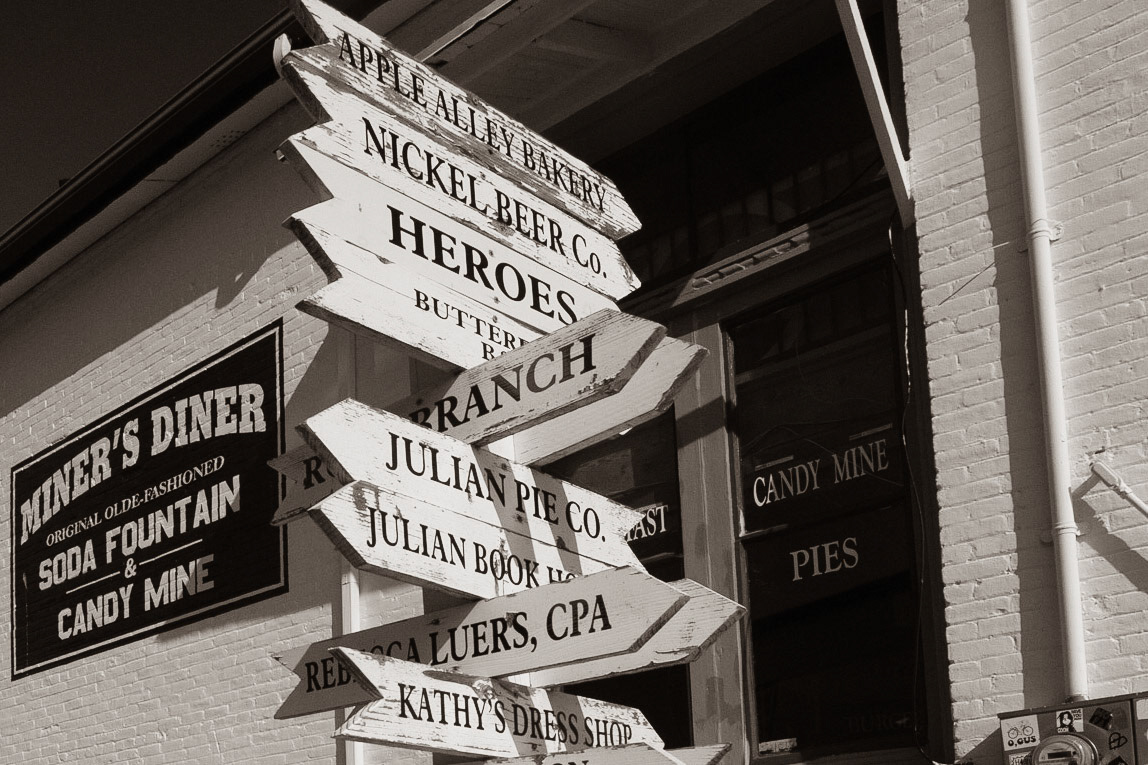 APPLE ALLEY BAKERY
NICKEL BEER Co.
HEROES
BRANCH
JULIAN PIE CO.
JULIAN BOOK
LUERS, CPA
KATHY'S DRESS SHOP
MINER'S DINER
ORIGINAL OLDE-FASHIONED
SODA FOUNTAIN
&
CANDY MINE
CANDY MINE
PIES